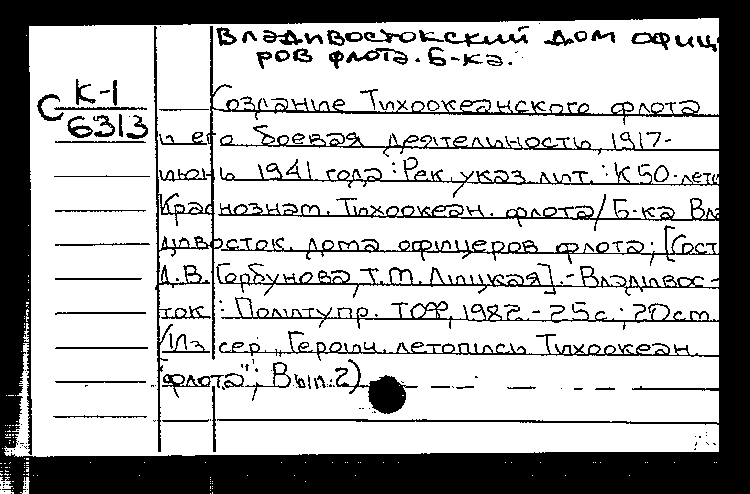 Владивостокский дом офиц
ров флота. Б-ка.
С К-1
6313
Создание Тихоокеанского флота
и его боевая деятельность, 1917-
июнь 1941 года : Рек. указ. лит. : К 50-лети
Краснознам. Тихоокеан. флота / Б-ка Вла
дивосток. дома офицеров флота; [Сост.
Д.В. Горбунова, Т.М. Липцкая]. - Владивос-
ток : Политупр. ТОФ, 1982. - 25 с ; 20 cm.
(Из сер. „Героич. летопись Тихоокеан.
флота"; Вып. 2)